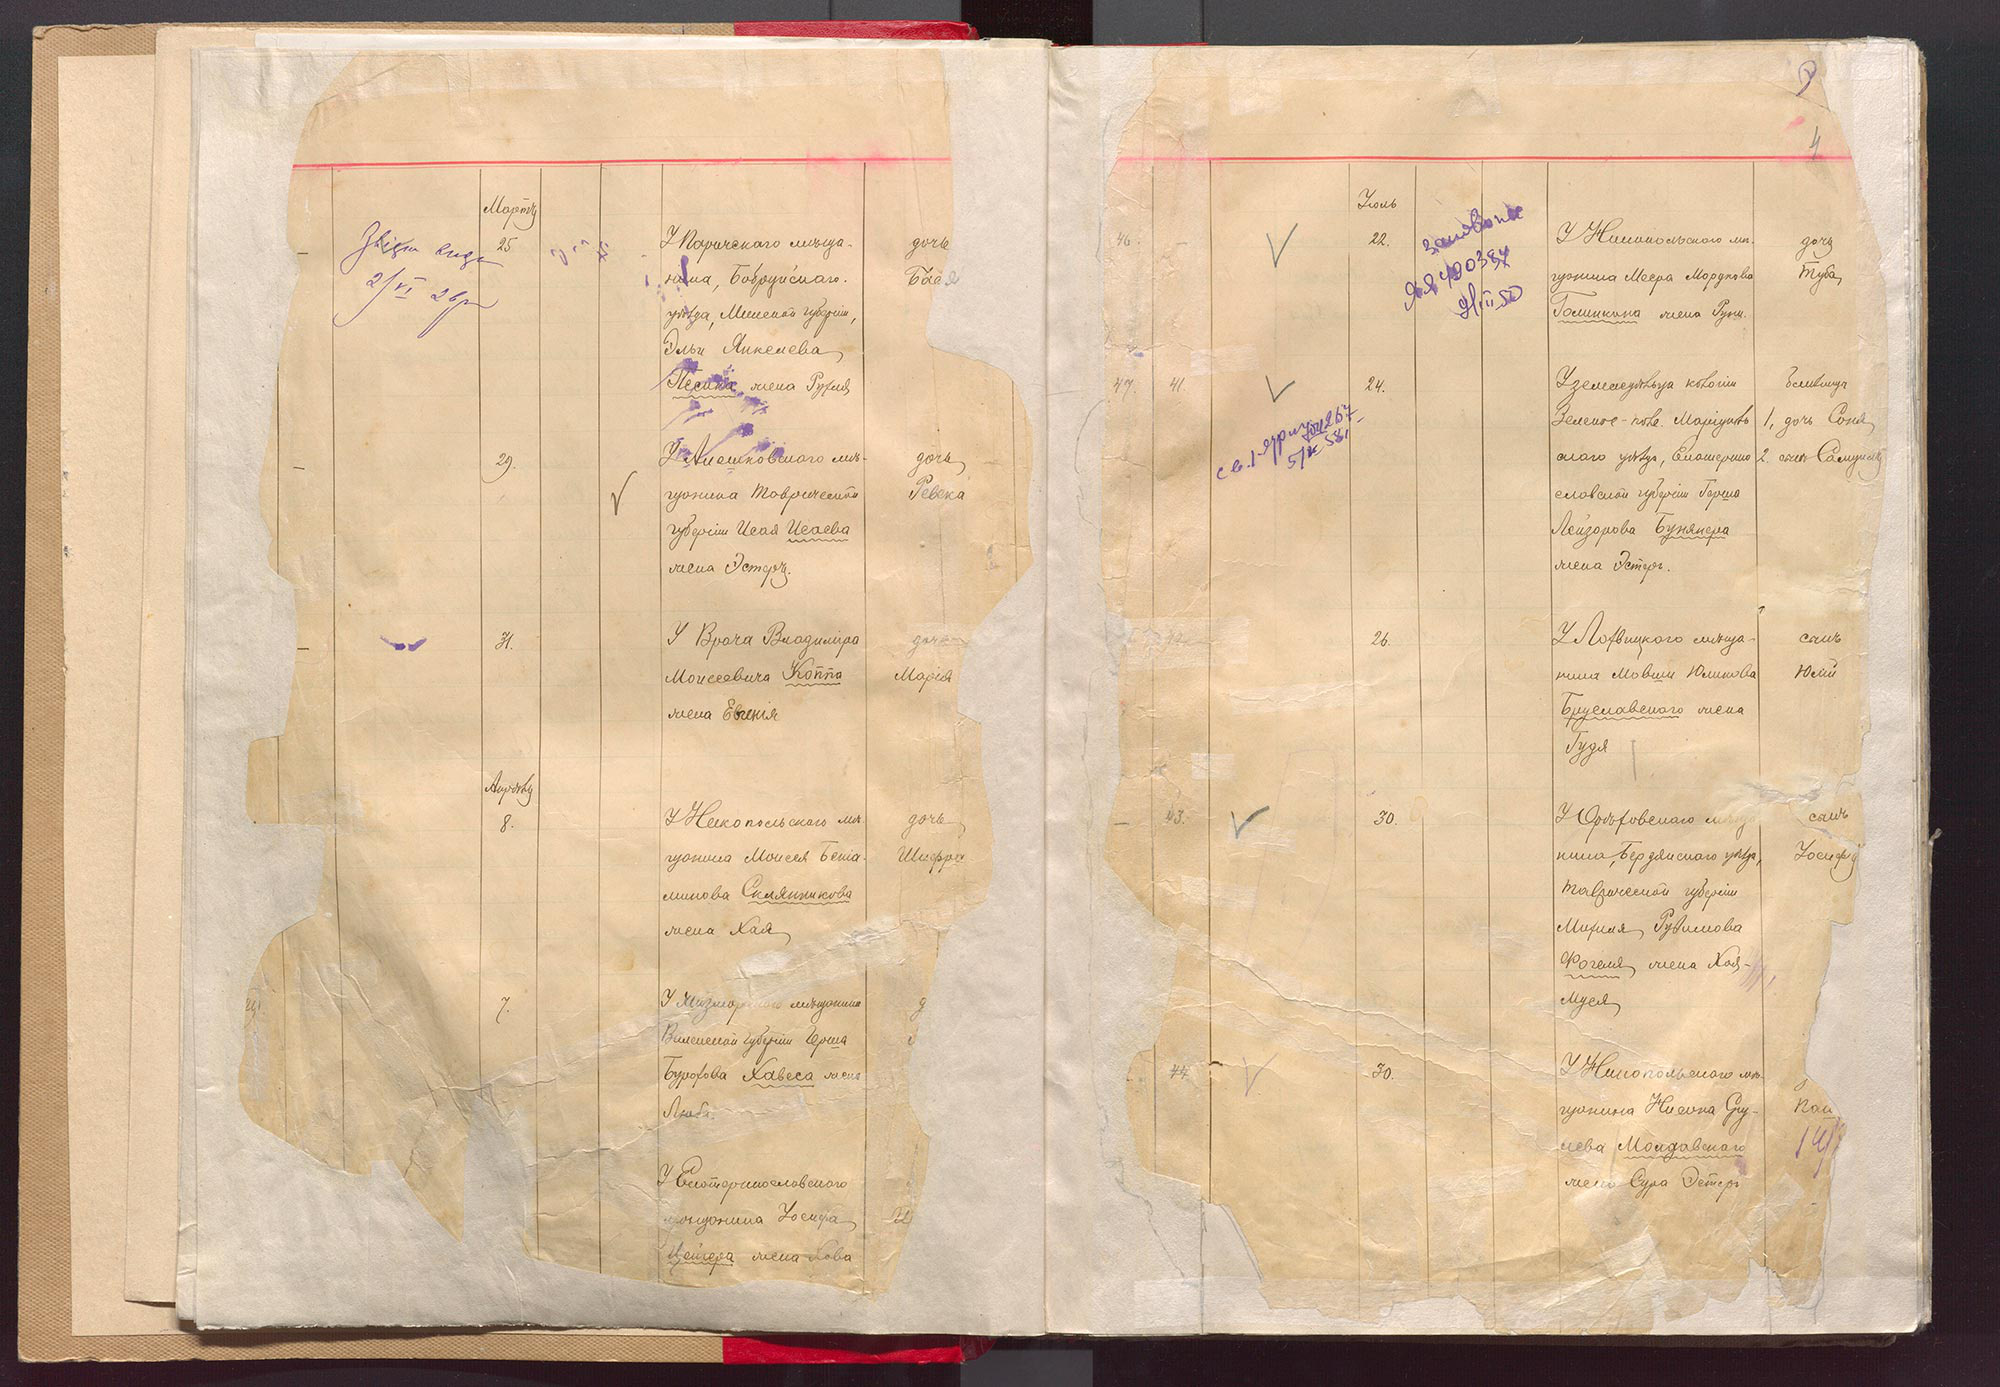 Мартъ
25
У Паричскаго мѣща-
нина, Бобруйскаго
уѣзда, Минской губерніи,
Эльи Янкелева
Песина жена Рухля
дочь
Бася
29.
У Алешковскаго мѣ-
щанина Таврической
губерніи Исая Исаева
жена Эстеръ.
дочь
Ревека
31.
У Врача Владиміра
Моисеевича Коппа
жена Евгенія
дочь
Марія
Апрѣль
8.
У Никопольскаго мѣ-
щанина Моисея Бенiа-
минова Склянникова
жена Хая
дочь
Шифра
7.
мѣщанина
Виленской губерніи Герша
Бурохова Хавеса жена
Люба.
У Екатеринославскаго
мѣщанина Іосифа
Цейгера жена Хова
4
Іюль
46.
22.
У Никопольскаго мѣ-
щанина Меера Мордухова
Голикова жена Рухл.
дочь
Туба
47.
41.
24.
У земледѣльца колоніи
Зелено-поле Маріуполь
скаго уѣзда, Екатерино
славской губерніи Герша
Лейзорова Бунянера
жена Эстеръ.
близнцы
1, дочь Соня
2. сынъ Самуилъ
26.
У Лохвицкаго мѣща-
нина Мовши Юликова
Бруславскаго жена
Гудя
сынъ
Юлій
43.
30.
У Орѣховскаго мѣща
нина, Бердянскаго уѣзда,
Таврической губерніи
Михиля Рувимова
Фогеля жена Хая-
Муся
сынъ
Іосифъ
44
30.
У Никопольскаго мѣ-
щанина Нисона Сру-
лева Молдавскаго
жена Сура Эстеръ